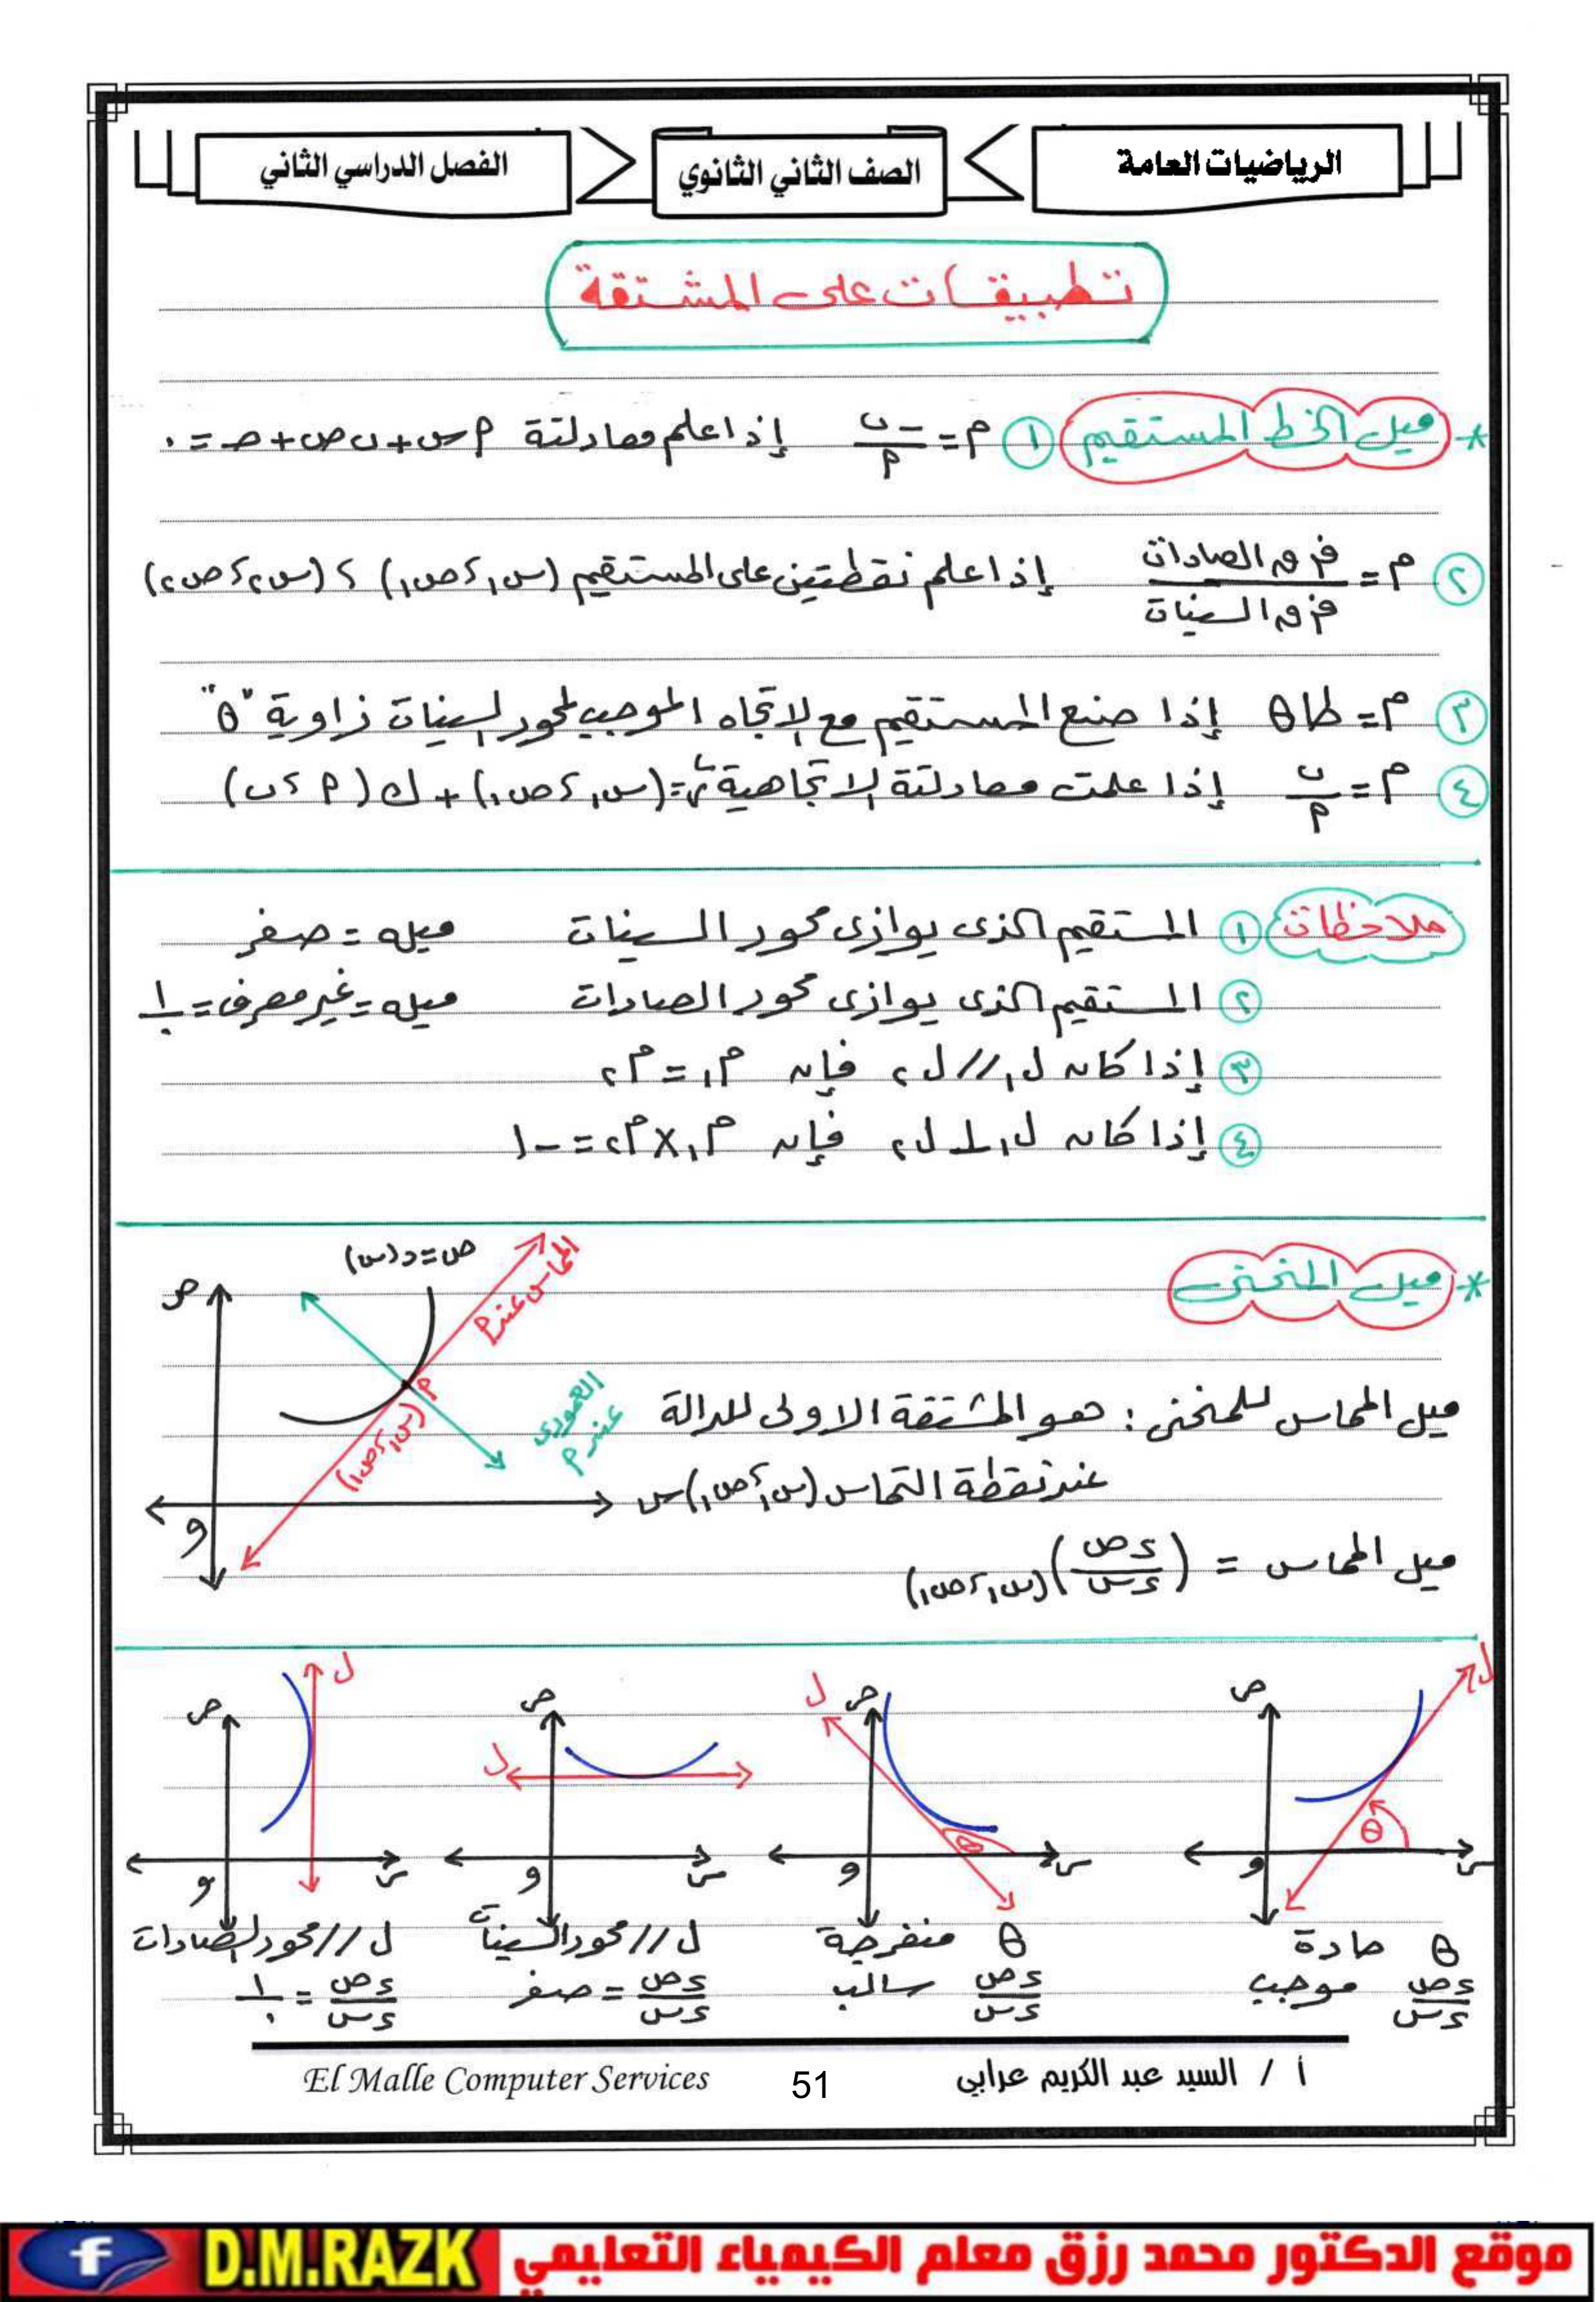 الرياضيات العامة
الصف الثاني الثانوي
الفصل الدراسي الثاني
تطبيقات على المشتقة
* ميل الخط المستقيم ① م = -ب/أ إذا علم معادلتة أس + ب ص + جـ = ٠
② م = فرق الصادات/فرق السينات إذا علم نقطتين على المستقيم (س١، ص١) ، (س٢، ص٢)
③ م = طا θ إذا صنع المستقيم مع الاتجاه الموجب لمحور السينات زاوية "θ"
④ م = ب/أ إذا علمت معادلتة الاتجاهية ر = (س١، ص١) + ك (أ، ب)
ملاحظات ① المستقيم الذى يوازى محور السينات ميله = صفر
② المستقيم الذى يوازى محور الصادات ميله = غير معرف = ١/٠
③ إذا كان ل١ // ل٢ فإن م١ = م٢
④ إذا كان ل١ ⊥ ل٢ فإن م١ × م٢ = -١
* ميل المنحنى
ص = د(س)
المماس عند أ
ص
أ (س١، ص١)
العمودى عند أ
س
و
ميل المماس للمنحنى : هو المشتقة الاولى للدالة
عند نقطة التماس (س١، ص١)
ميل المماس = (ءص/ءس)(س١، ص١)
ل ص θ س و
ل ص θ س و
ص ل س و
ص ل س و
θ حادة
ءص/ءس موجب
θ منفرجة
ءص/ءس سالب
ل // محور السينات
ءص/ءس = صفر
ل // محور الصادات
ءص/ءس = ١/٠
أ / السيد عبد الكريم عرابي
51
El Malle Computer Services
موقع الدكتور محمد رزق معلم الكيمياء التعليمي
D.M.RAZK
f